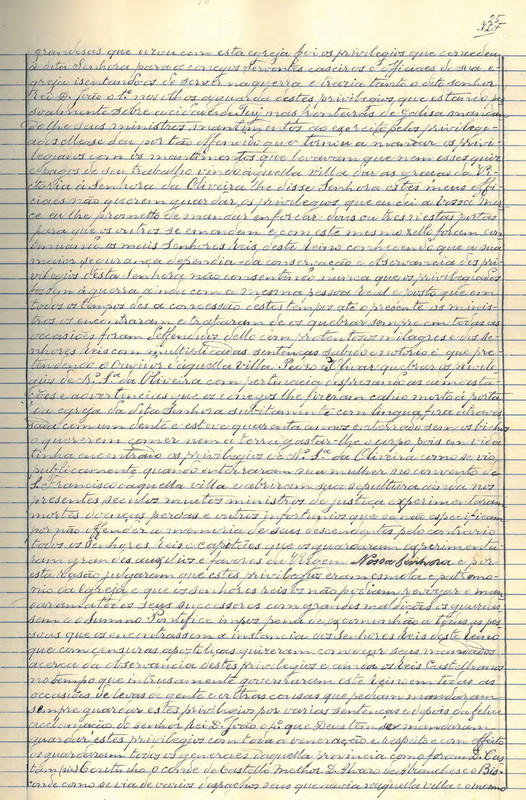 grandesas que uzou com esta egreja foi os privilegios que concedeu
á dita Senhora para os conegos serventes caseiros e officiaes de sua e
greja isentando-os de servir na guerra e trazia tanto o dito senhor
Rei D. João o 1º nos olhos a guarda destes privilegios que estando pe
soalmente sobre a cidade de Tuy nas fronteiras de Galisa mandan
do lhe seus ministros mantimentos ao exercito pelos privilegia
dos elle se deu por tão offendido que tornou a mandar os privi
legiados com os mantimentos que levavam que nem esses quiz
e pagos de seu trabalho vindo áquella villa dar as graças da Vi
ctoria á Senhora da Oliveira lhe disse Senhora estes meus offi
ciaes não querem guardar os privilegios que eu dei a vossa mer
ce eu lhe prometto de mandar enforcar dois ou tres n'estas portas
para que os outros se emendem e com este mesmo zello foram con
tinuando os mais Senhores Reis deste Reino conhecendo que a sua
maior segurança dependia da conservação e observancia dos pri
vilegios desta Senhora não consentindo nunca que os privilegiados
fossem á guerra ainda com a mesma pessoa Real e posto que em
todos os tempos des a concessão destes tempos até o presente os minis
tros os encontraram e trataram de os quebrar sempre em todas as
occasiões foram deffendidos dello com portentosos milagres e dos se
nhores Reis com multiplicadas sentenças sabido e notorio é que pre
tendendo o Ouvidor d'aquella villa Pedro quebrar os privile
gios de N.ª S.ª da Oliveira com pertinacia despresando as amoesta
ções e advertencias que os conegos lhe fizeram cahio morto á porta
da egreja da dita Senhora subitamente com lingua fora atraves
sada com um dente e esteve quarenta annos enterrado sem os bichos
o quererem comer nem a terra gastar-lhe o corpo pois em vida
tinha encontrado os privilegios de N.ª S.ª da Oliveira como se vio
publicamente quando enterraram sua mulher no convento de
S. Francisco daquella villa e abriram sua sepultura ainda nos
presentes seculos muitos ministros de justiça experimentaram
mortes doenças perdas e outros infortunios que se não especificam
por não offender a memoria de seus descendentes pelo contrario
todos os Senhores Reis e Capitães que os guardaram experimenta
ram grandes auxilios e favores da Virgem Nossa Senhora e por
esta rasão julgaram que estes privilegios eram esmola e patrimo
nio da Egreja e que os senhores reis os não podiam revogar e man
daram até os seus successores com grandes maldições os guardas
sem e o Summo Pontifice impoz pena de excomunhão a todas as pes
soas que os encontrassem a instancia dos Senhores Reis deste Reino
que com censuras apostolicas quizeram comoçar seus mandados
acerca da observancia destes privilegios e ainda os Reis Castelhanos
no tempo que intrusamente governaram este Reino em todas as
occasiões de levas de gente e outras cousas que pediam mandaram
sempre guardar estes privilegios por varias sentenças e depois da feliz
acclamação do senhor Rei D. João o 4º que Deus tem se mandaram
guardar estes privilegios com toda a veneração e respeito e com effeito
os guardaram todos os generaes daquella Provincia como foram D. Cas
tam (sic) Coutinho o conde de Castello Melhor D. Alvaro de Abranches e o Bis
conde como se via de varios despachos seus que havia n'aquella villa e o mesmo